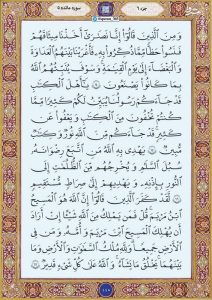 جزء ٦
سوره مائده ٥
وَمِنَ الَّذِينَ قَالُوا إِنَّا نَصَارَىٰ أَخَذْنَا مِيثَاقَهُمْ
فَنَسُوا حَظًّا مِمَّا ذُكِّرُوا بِهِ فَأَغْرَيْنَا بَيْنَهُمُ الْعَدَاوَةَ
وَالْبَغْضَاءَ إِلَىٰ يَوْمِ الْقِيَامَةِ وَسَوْفَ يُنَبِّئُهُمُ اللَّهُ
بِمَا كَانُوا يَصْنَعُونَ ١٤ يَا أَهْلَ الْكِتَابِ
قَدْ جَاءَكُمْ رَسُولُنَا يُبَيِّنُ لَكُمْ كَثِيرًا مِمَّا
كُنْتُمْ تُخْفُونَ مِنَ الْكِتَابِ وَيَعْفُو عَنْ
كَثِيرٍ قَدْ جَاءَكُمْ مِنَ اللَّهِ نُورٌ وَكِتَابٌ
مُبِينٌ ١٥ يَهْدِي بِهِ اللَّهُ مَنِ اتَّبَعَ رِضْوَانَهُ
سُبُلَ السَّلَامِ وَيُخْرِجُهُمْ مِنَ الظُّلُمَاتِ إِلَى
النُّورِ بِإِذْنِهِ وَيَهْدِيهِمْ إِلَىٰ صِرَاطٍ مُسْتَقِيمٍ
١٦ لَقَدْ كَفَرَ الَّذِينَ قَالُوا إِنَّ اللَّهَ هُوَ الْمَسِيحُ
ابْنُ مَرْيَمَ قُلْ فَمَنْ يَمْلِكُ مِنَ اللَّهِ شَيْئًا إِنْ أَرَادَ
أَنْ يُهْلِكَ الْمَسِيحَ ابْنَ مَرْيَمَ وَأُمَّهُ وَمَنْ فِي
الْأَرْضِ جَمِيعًا وَلِلَّهِ مُلْكُ السَّمَاوَاتِ وَالْأَرْضِ وَمَا
بَيْنَهُمَا يَخْلُقُ مَا يَشَاءُ وَاللَّهُ عَلَىٰ كُلِّ شَيْءٍ قَدِيرٌ ١٧
١١٠